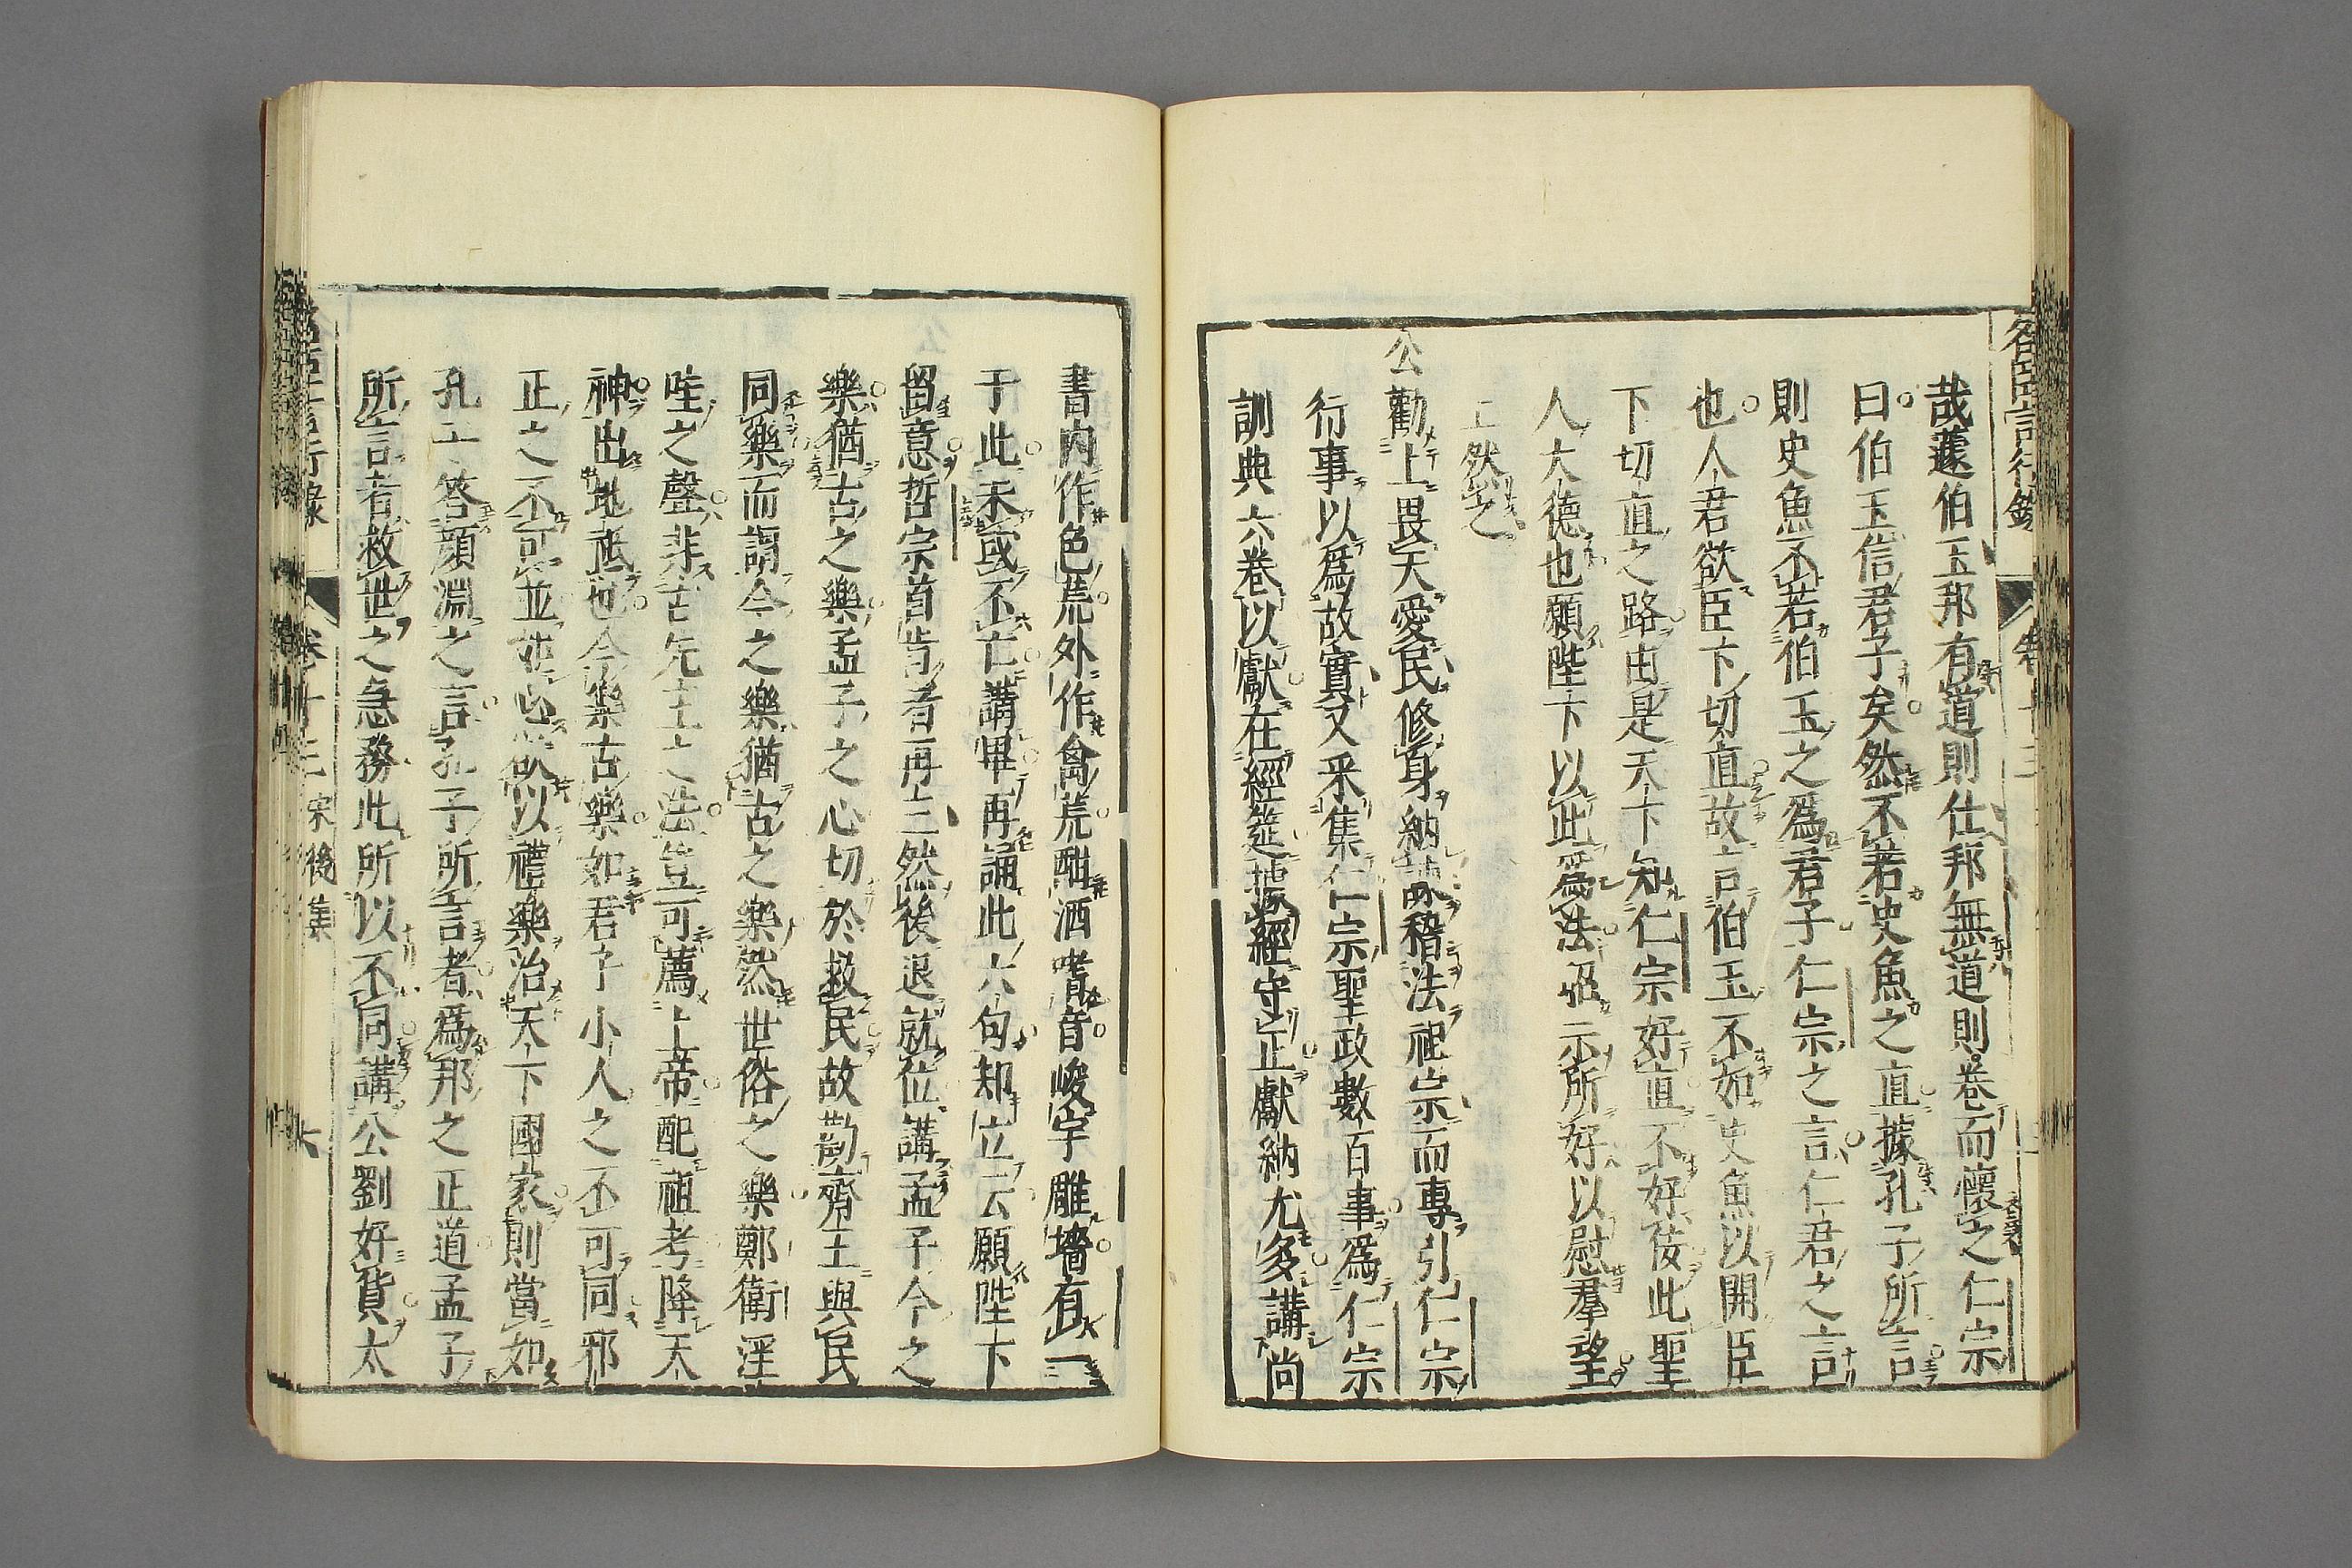 名臣言行錄
哉蘧伯玉邦有道則仕邦無道則卷而懷之仁宗
曰伯玉信君子矣然不若史魚之直據孔子所言
則史魚不若伯玉之爲君子仁宗之言仁君之言
也人君欲臣下切直故言伯玉不如史魚以開臣
下切直之路由是天下知仁宗好直不好佞此聖
人大德也願陛下以此爲法昭示所好以慰羣望
上然之
公勸上畏天愛民修身納諫稽法祖宗而專引仁宗
行事以爲故實又采集仁宗聖政數百事爲仁宗
訓典六卷以獻在經筵據經守正獻納尤多講尚
書內作色荒外作禽荒酣酒嗜音峻宇雕墻有一
于此未或不亡講畢再誦此六句却立云願陛下
留意哲宗首肯者再三然後退就位講孟子今之
樂猶古之樂孟子之心切於救民故勸齊王與民
同樂而謂今之樂猶古之樂然世俗之樂鄭衞淫
哇之聲非古先王之法豈可薦上帝配祖考降天
神出地祗也今樂古樂如君子小人之不可同邪
正之不可並茍欲以禮樂治天下國家則當如
孔子答顔淵之言孔子所言者爲邦之正道孟子
所言者救世之急務此所以不同講公劉好貨太
言行錄 卷十三 宋後集 六